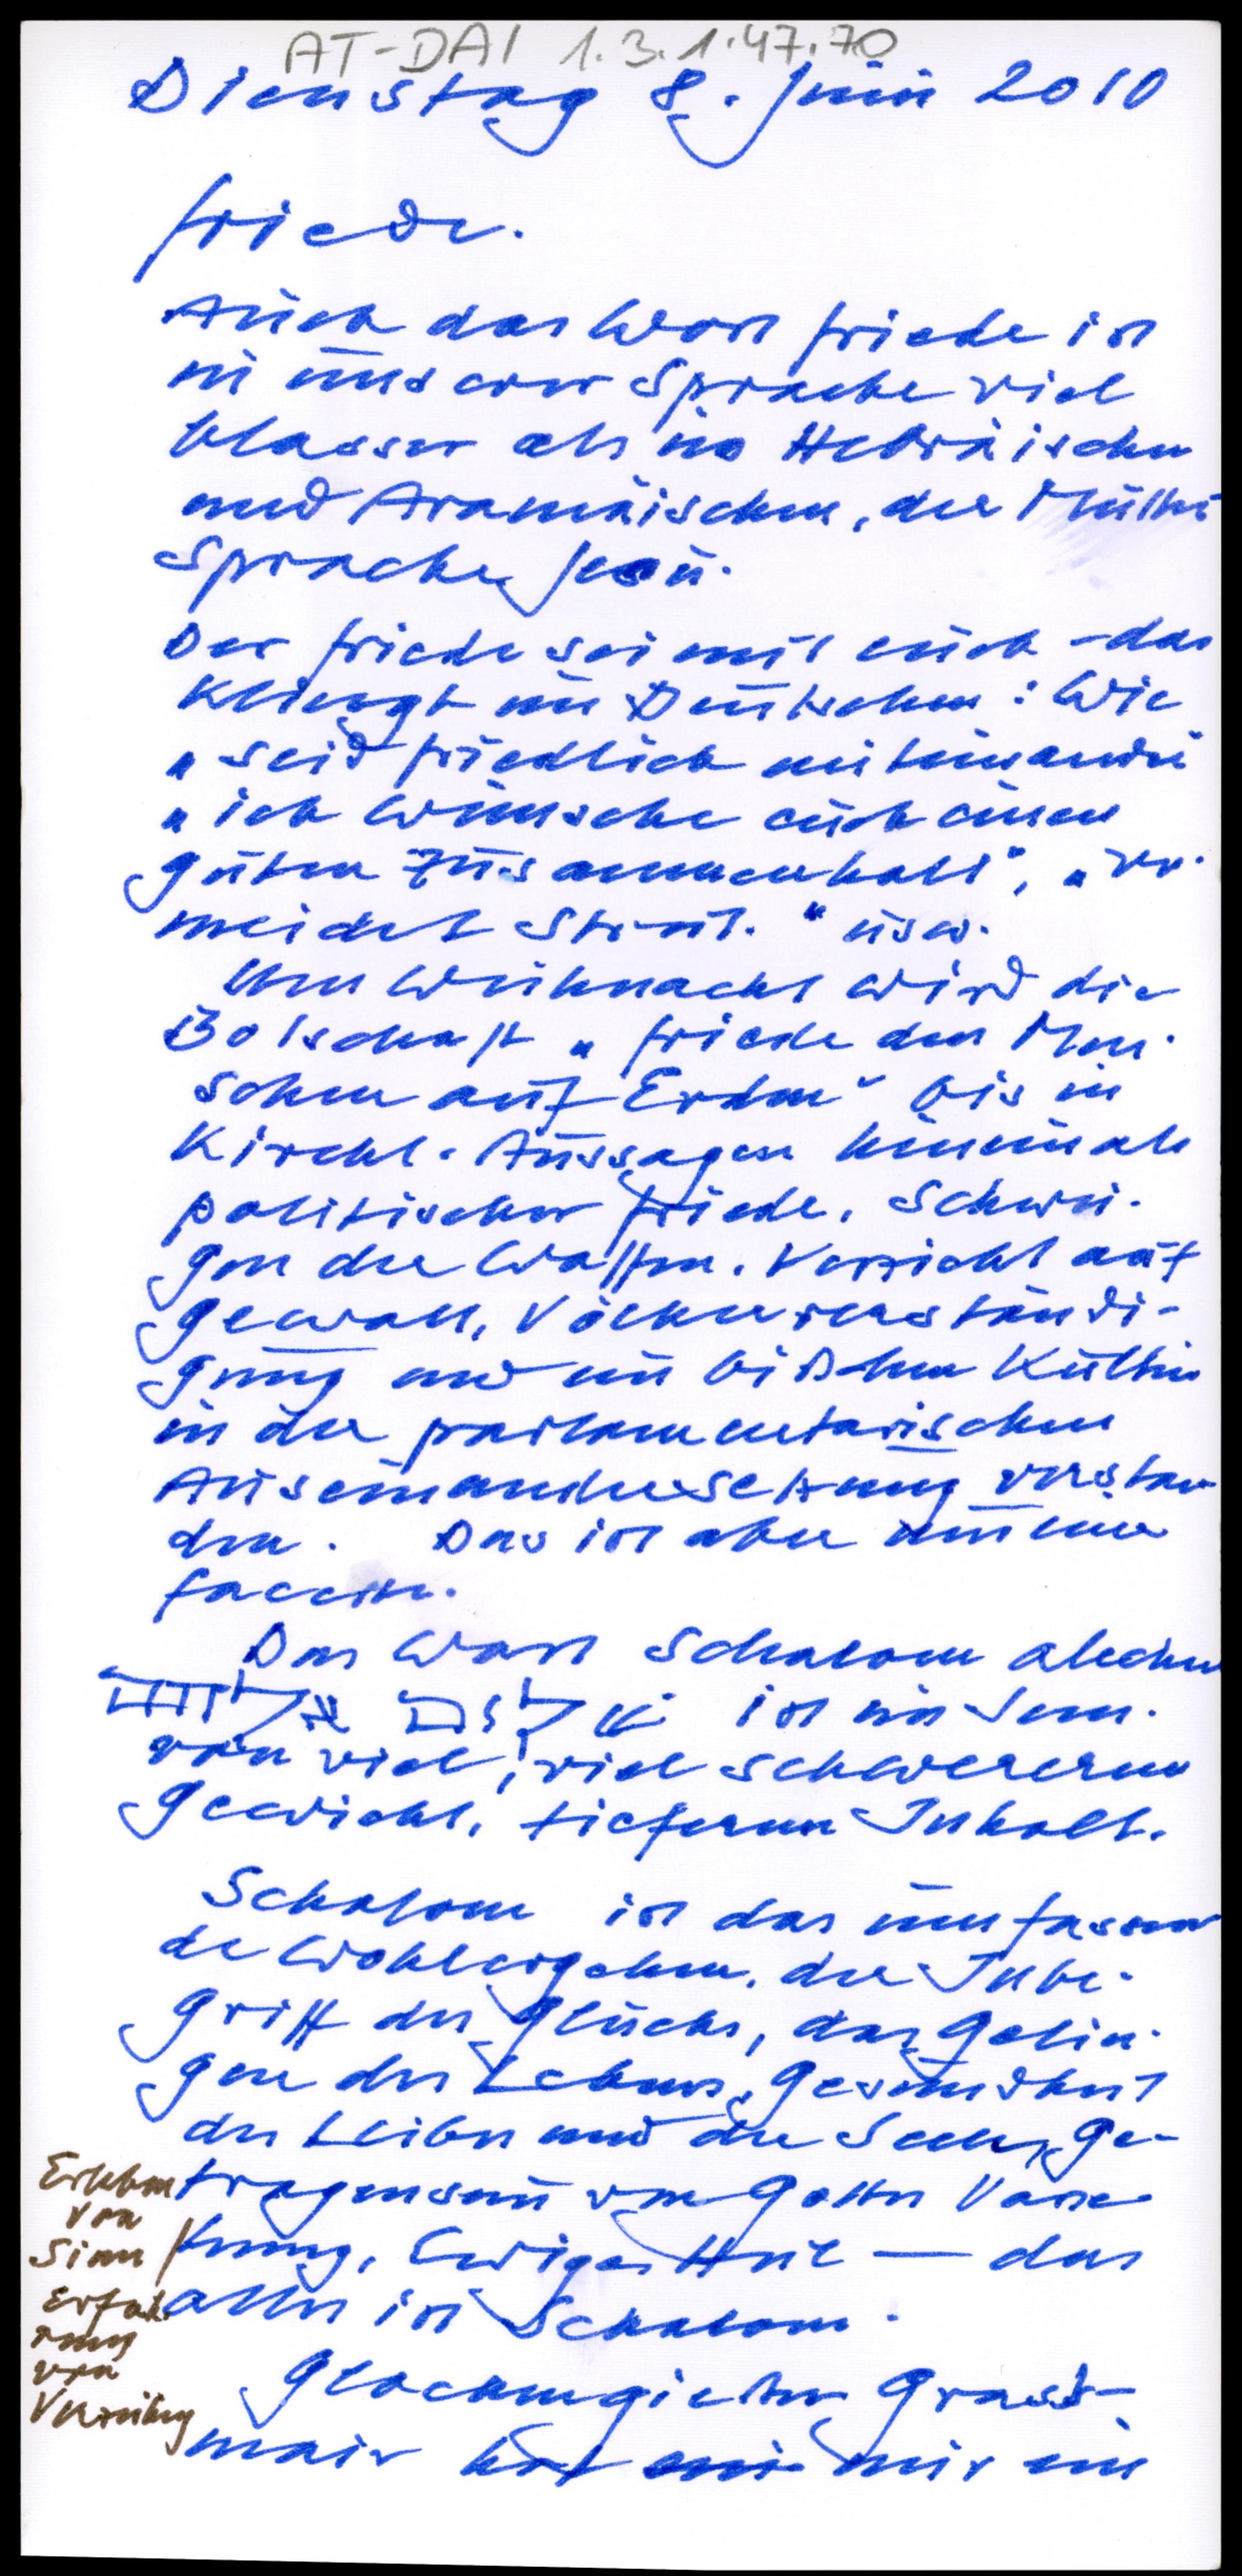 AT-DAI 1.3.1.47.70
Dienstag 8. Juni 2010
Friede.
Auch das Wort Friede ist
in unserer Sprache viel
blasser als im Hebräischen
und Aramäischen, der Mutter
Sprache Jesu.
Der Friede sei mit euch - das
klingt im Deutschen: Wie
"seid friedlich miteinander
"ich wünsche euch einen
guten Zusammenhalt", "ver-
meidet Streit." usw.
Um Weihnacht wird die
Botschaft "Friede den Men-
schen auf Erden" bis in
Kirchl. Aussagen hinein als
politischer Friede, Schwei-
gen der Waffen, Verzicht auf
Gewalt, Völkerverständi-
gung und ein bißchen Kultur
in der parlamentarischen
Auseinandersetzung verstan
den. Das ist aber nur eine
Facette.
Das Wort Schalom alechem
ist ein Sem.
von viel, viel schwererem
Gewicht, tieferem Inhalt.
Schalom ist das umfassen
de Wohlergehen, der Inbe-
griff des Glücks, das Gelin-
gen des Lebens, Gesundheit
des Leibes und der Seele, Ge-
tragensein von Gottes Vorse
hung, Ewiges Heil — das
alles ist Schalom.
Glockengießer Grass-
mair hat mir ein
Erleben
von
Sinn
Erfah-
rung
von
Verzeihung